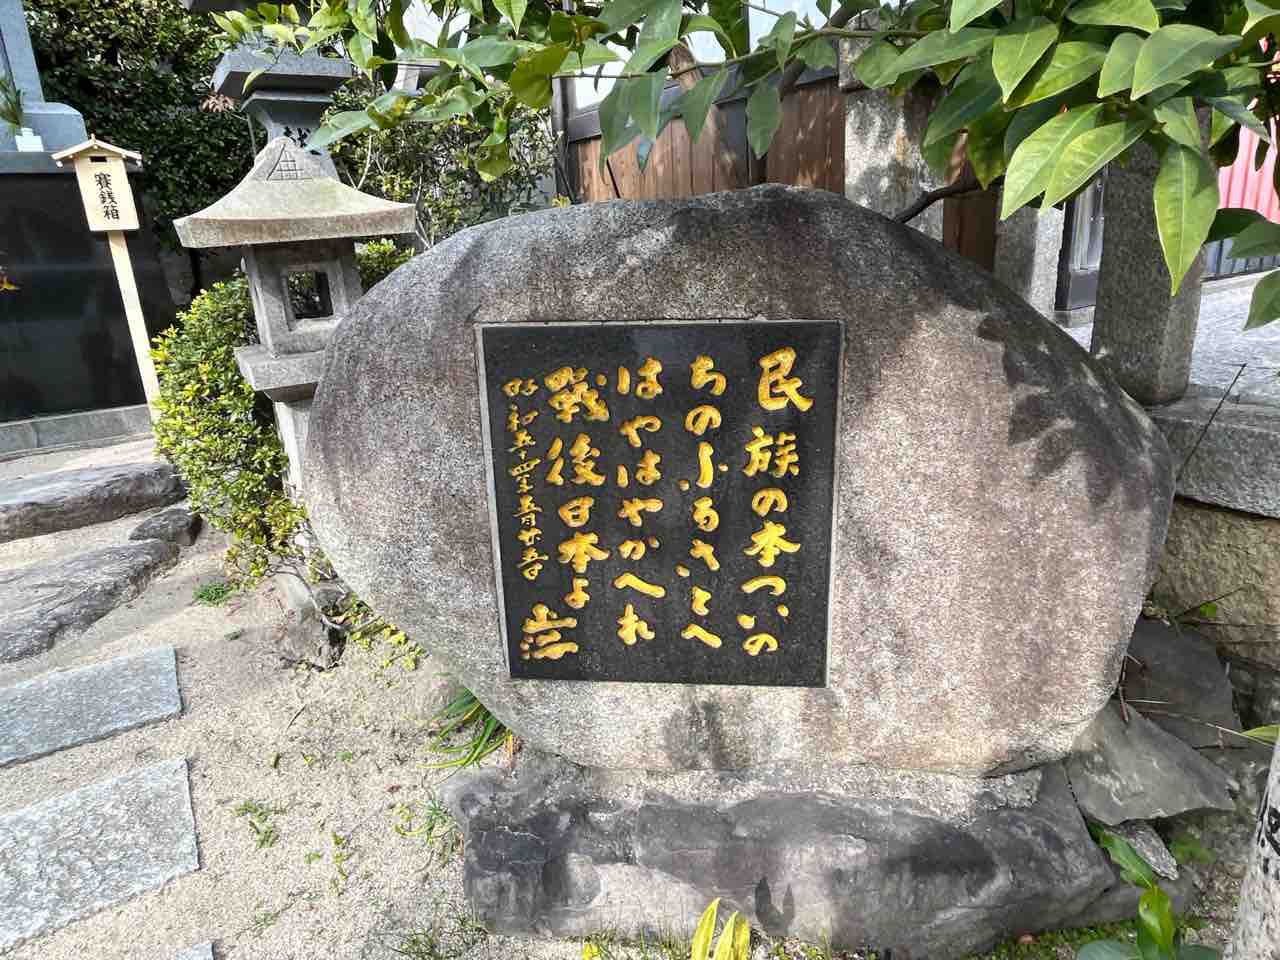 民族の本ついの
ちのふるさとへ
はやはやかへれ
戰後日本よ
昭和五十四年五月廿五日
賽銭箱